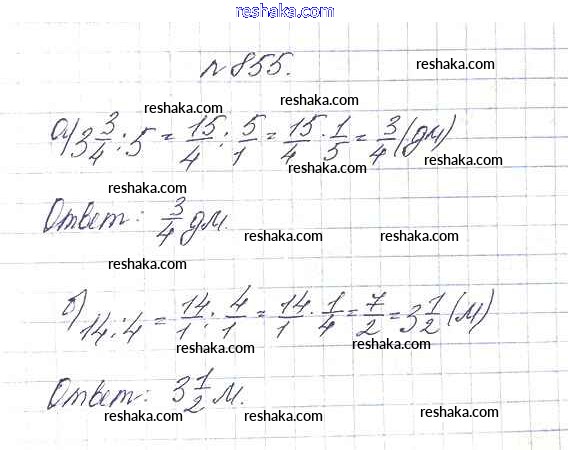 reshaka.com
№ 855.
reshaka.com reshaka.com
reshaka.com reshaka.com
а) 3 3/4 : 5 = 15/4 : 5/1 = 15/4 · 1/5 = 3/4 (дм)
reshaka.com reshaka.com reshaka.com
reshaka.com reshaka.com
Ответ: 3/4 дм.
reshaka.com reshaka.com
reshaka.com
б) 14 : 4 = 14/1 : 4/1 = 14/1 · 1/4 = 7/2 = 3 1/2 (м)
reshaka.com reshaka.com
reshaka.com reshaka.com
Ответ: 3 1/2 м.
reshaka.com reshaka.com reshaka.com